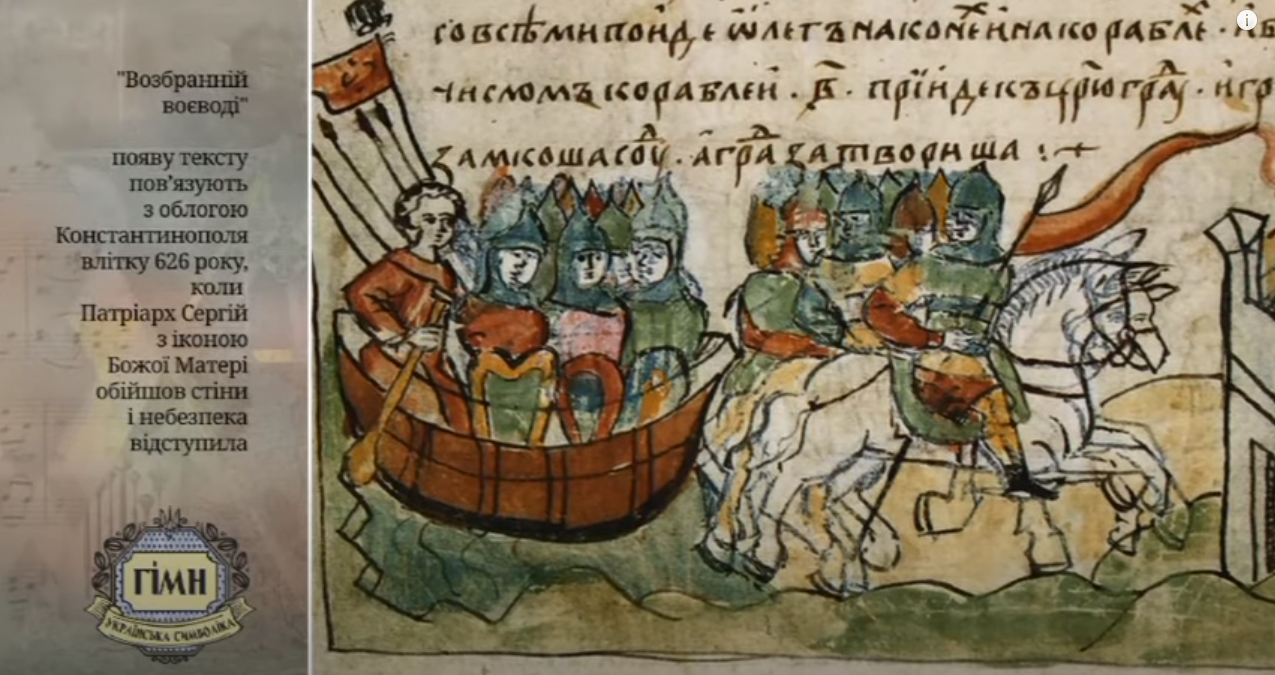 "Возбранній
воєводі"
появу тексту
пов'язують
з облогою
Константинополя
влітку 626 року,
коли
Патріарх Сергій
з іконою
Божої Матері
обійшов стіни
і небезпека
відступила
ГІМН
УКРАЇНСЬКА СИМВОЛІКА
числомъ кораблеи . в҃ . прїиде къ цр҃ю гра
замкоша соу . а гра затвориша :